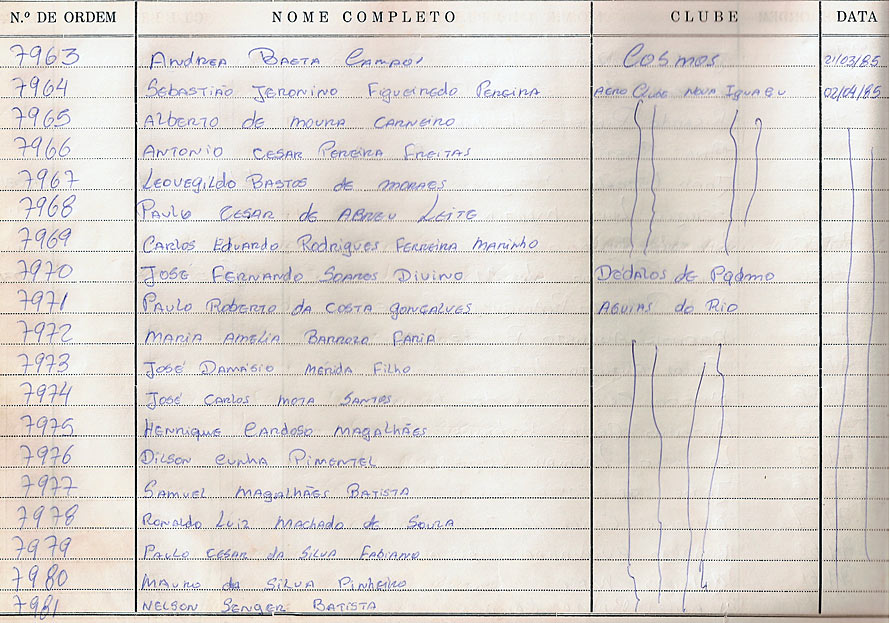 N.º DE ORDEM NOME COMPLETO CLUBE DATA
7963 Andrea Basta Campos Cosmos 21/03/85
7964 Sebastião Jeronino Figueiredo Pereira Aero Clube Nova Iguaçu 02/04/85
7965 Alberto de Moura Carneiro
7966 Antonio Cesar Pereira Freitas
7967 Leovegildo Bastos de Moraes
7968 Paulo Cesar de Abreu Leite
7969 Carlos Eduardo Rodrigues Ferreira Marinho
7970 José Fernando Soares Divino Dedalos de
7971 Paulo Roberto da Costa Gonçalves Aguias do Rio
7972 Maria Amelia Barrozo Faria
7973 José Damásio Merida Filho
7974 José Carlos Mota Santos
7975 Henrique Cardoso Magalhães
7976 Dilson Cunha Pimentel
7977 Samuel Magalhães Batista
7978 Ronaldo Luiz Machado de Souza
7979 Paulo Cesar da Silva Fabiano
7980 Mauro da Silva Pinheiro
7981 Nelson Senger Batista